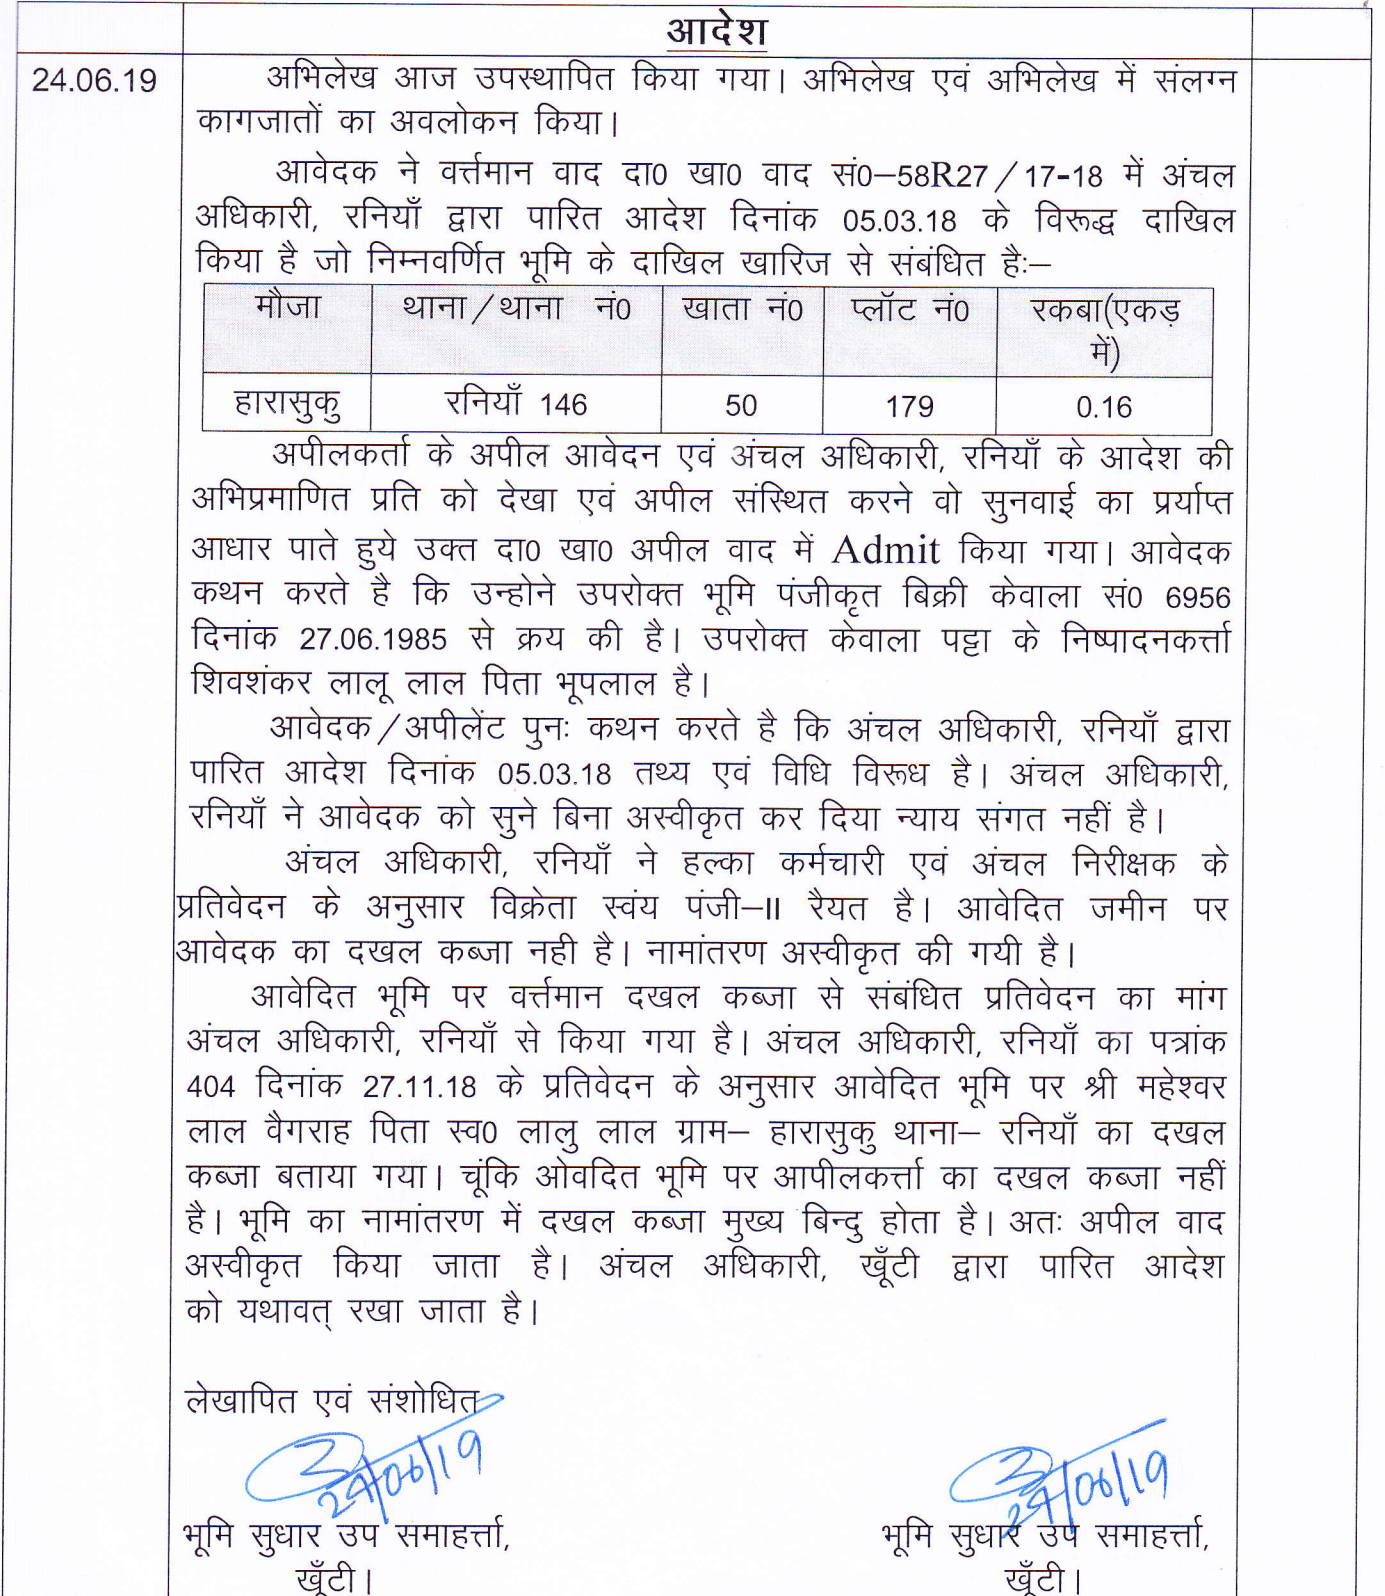 आदेश
24.06.19
अभिलेख आज उपस्थापित किया गया। अभिलेख एवं अभिलेख में संलग्न
कागजातों का अवलोकन किया।
आवेदक ने वर्त्तमान वाद दा0 खा0 वाद सं0–58R27/17-18 में अंचल
अधिकारी, रनियाँ द्वारा पारित आदेश दिनांक 05.03.18 के विरूद्ध दाखिल
किया है जो निम्नवर्णित भूमि के दाखिल खारिज से संबंधित हैः–
मौजा थाना/थाना नं0 खाता नं0 प्लॉट नं0 रकबा(एकड़
में)
हारासुकु रनियाँ 146 50 179 0.16
अपीलकर्ता के अपील आवेदन एवं अंचल अधिकारी, रनियाँ के आदेश की
अभिप्रमाणित प्रति को देखा एवं अपील संस्थित करने वो सुनवाई का प्रर्याप्त
आधार पाते हुये उक्त दा0 खा0 अपील वाद में Admit किया गया। आवेदक
कथन करते है कि उन्होने उपरोक्त भूमि पंजीकृत बिक्री केवाला सं0 6956
दिनांक 27.06.1985 से क्रय की है। उपरोक्त केवाला पट्टा के निष्पादनकर्त्ता
शिवशंकर लालू लाल पिता भूपलाल है।
आवेदक/अपीलेंट पुनः कथन करते है कि अंचल अधिकारी, रनियाँ द्वारा
पारित आदेश दिनांक 05.03.18 तथ्य एवं विधि विरूध है। अंचल अधिकारी,
रनियाँ ने आवेदक को सुने बिना अस्वीकृत कर दिया न्याय संगत नहीं है।
अंचल अधिकारी, रनियाँ ने हल्का कर्मचारी एवं अंचल निरीक्षक के
प्रतिवेदन के अनुसार विक्रेता स्वंय पंजी–II रैयत है। आवेदित जमीन पर
आवेदक का दखल कब्जा नही है। नामांतरण अस्वीकृत की गयी है।
आवेदित भूमि पर वर्त्तमान दखल कब्जा से संबंधित प्रतिवेदन का मांग
अंचल अधिकारी, रनियाँ से किया गया है। अंचल अधिकारी, रनियाँ का पत्रांक
404 दिनांक 27.11.18 के प्रतिवेदन के अनुसार आवेदित भूमि पर श्री महेश्वर
लाल वैगराह पिता स्व0 लालु लाल ग्राम– हारासुकु थाना– रनियाँ का दखल
कब्जा बताया गया। चूंकि ओवदित भूमि पर आपीलकर्त्ता का दखल कब्जा नहीं
है। भूमि का नामांतरण में दखल कब्जा मुख्य बिन्दु होता है। अतः अपील वाद
अस्वीकृत किया जाता है। अंचल अधिकारी, खूँटी द्वारा पारित आदेश
को यथावत् रखा जाता है।
लेखापित एवं संशोधित
24/06/19 24/06/19
भूमि सुधार उप समाहर्त्ता, भूमि सुधार उप समाहर्त्ता,
खूँटी। खूँटी।